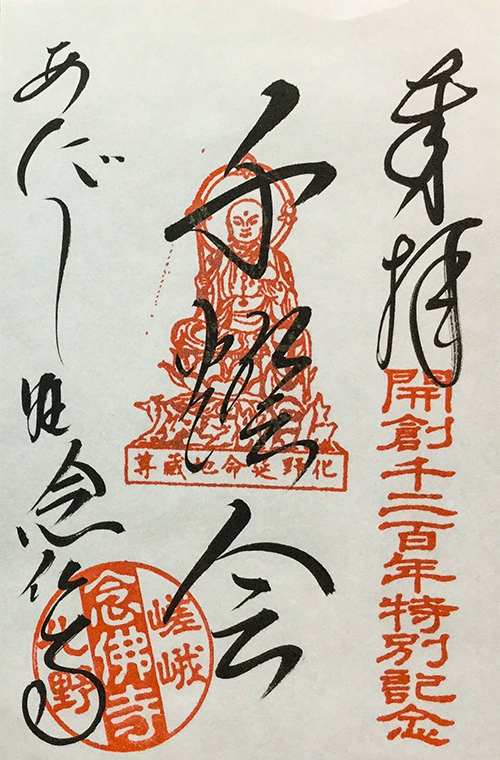 奉拝
開創千二百年特別記念
千燈会
化野延命地藏尊
あだし野念仏寺
嵯峨
念佛寺
化野